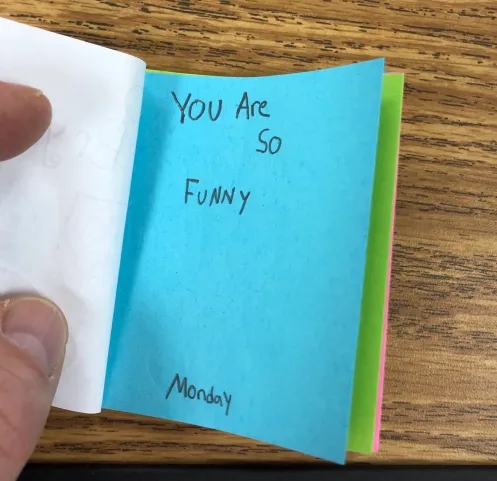 YOU Are
So
FUNNY
Monday